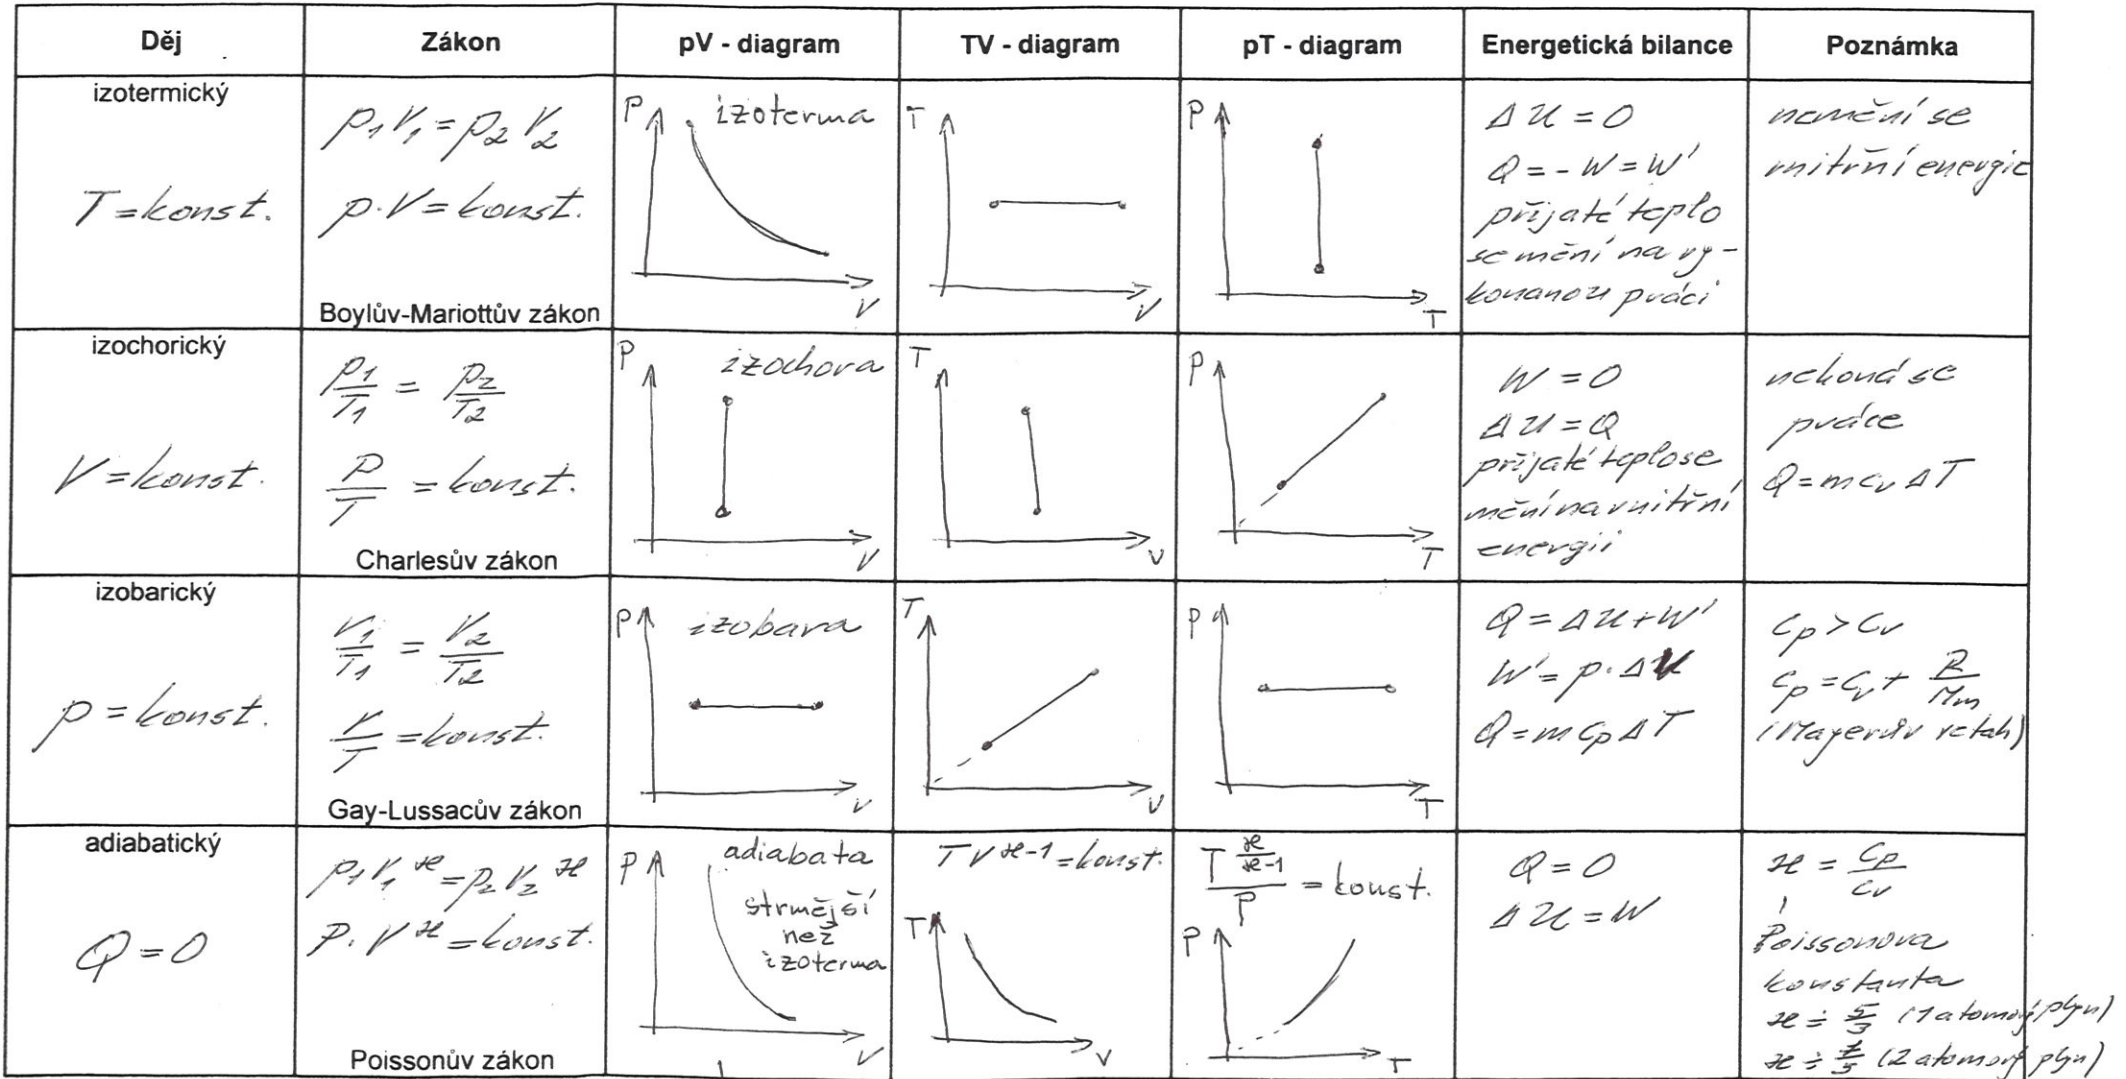 Děj
Zákon
pV - diagram
TV - diagram
pT - diagram
Energetická bilance
Poznámka
izotermický
T = konst.
p₁V₁ = p₂V₂
p·V = konst.
Boylův-Mariottův zákon
P
izoterma
V
T
V
P
T
ΔU = 0
Q = - W = W'
přijaté teplo
se mění na vy-
konanou práci
nemění se
vnitřní energie
izochorický
V = konst.
p₁/T₁ = p₂/T₂
p/T = konst.
Charlesův zákon
P
izochora
V
T
V
P
T
W = 0
ΔU = Q
přijaté teplo se
mění na vnitřní
energii
nekoná se
práce
Q = mcᵥΔT
izobarický
p = konst.
V₁/T₁ = V₂/T₂
V/T = konst.
Gay-Lussacův zákon
P
izobara
V
T
V
P
T
Q = ΔU + W'
W' = p·ΔV
Q = mcₚΔT
cₚ > cᵥ
cₚ = cᵥ + R/Mm
(Mayerův vztah)
adiabatický
Q = 0
p₁V₁^ϰ = p₂V₂^ϰ
p·V^ϰ = konst.
Poissonův zákon
P
adiabata
strmější
než
izoterma
V
TV^ϰ-1 = konst.
T
V
T^(ϰ/(ϰ-1))/P = konst.
P
T
Q = 0
ΔU = W
ϰ = cₚ/cᵥ
Poissonova
konstanta
ϰ ≐ 5/3 (1 atomový plyn)
ϰ ≐ 7/5 (2 atomový plyn)